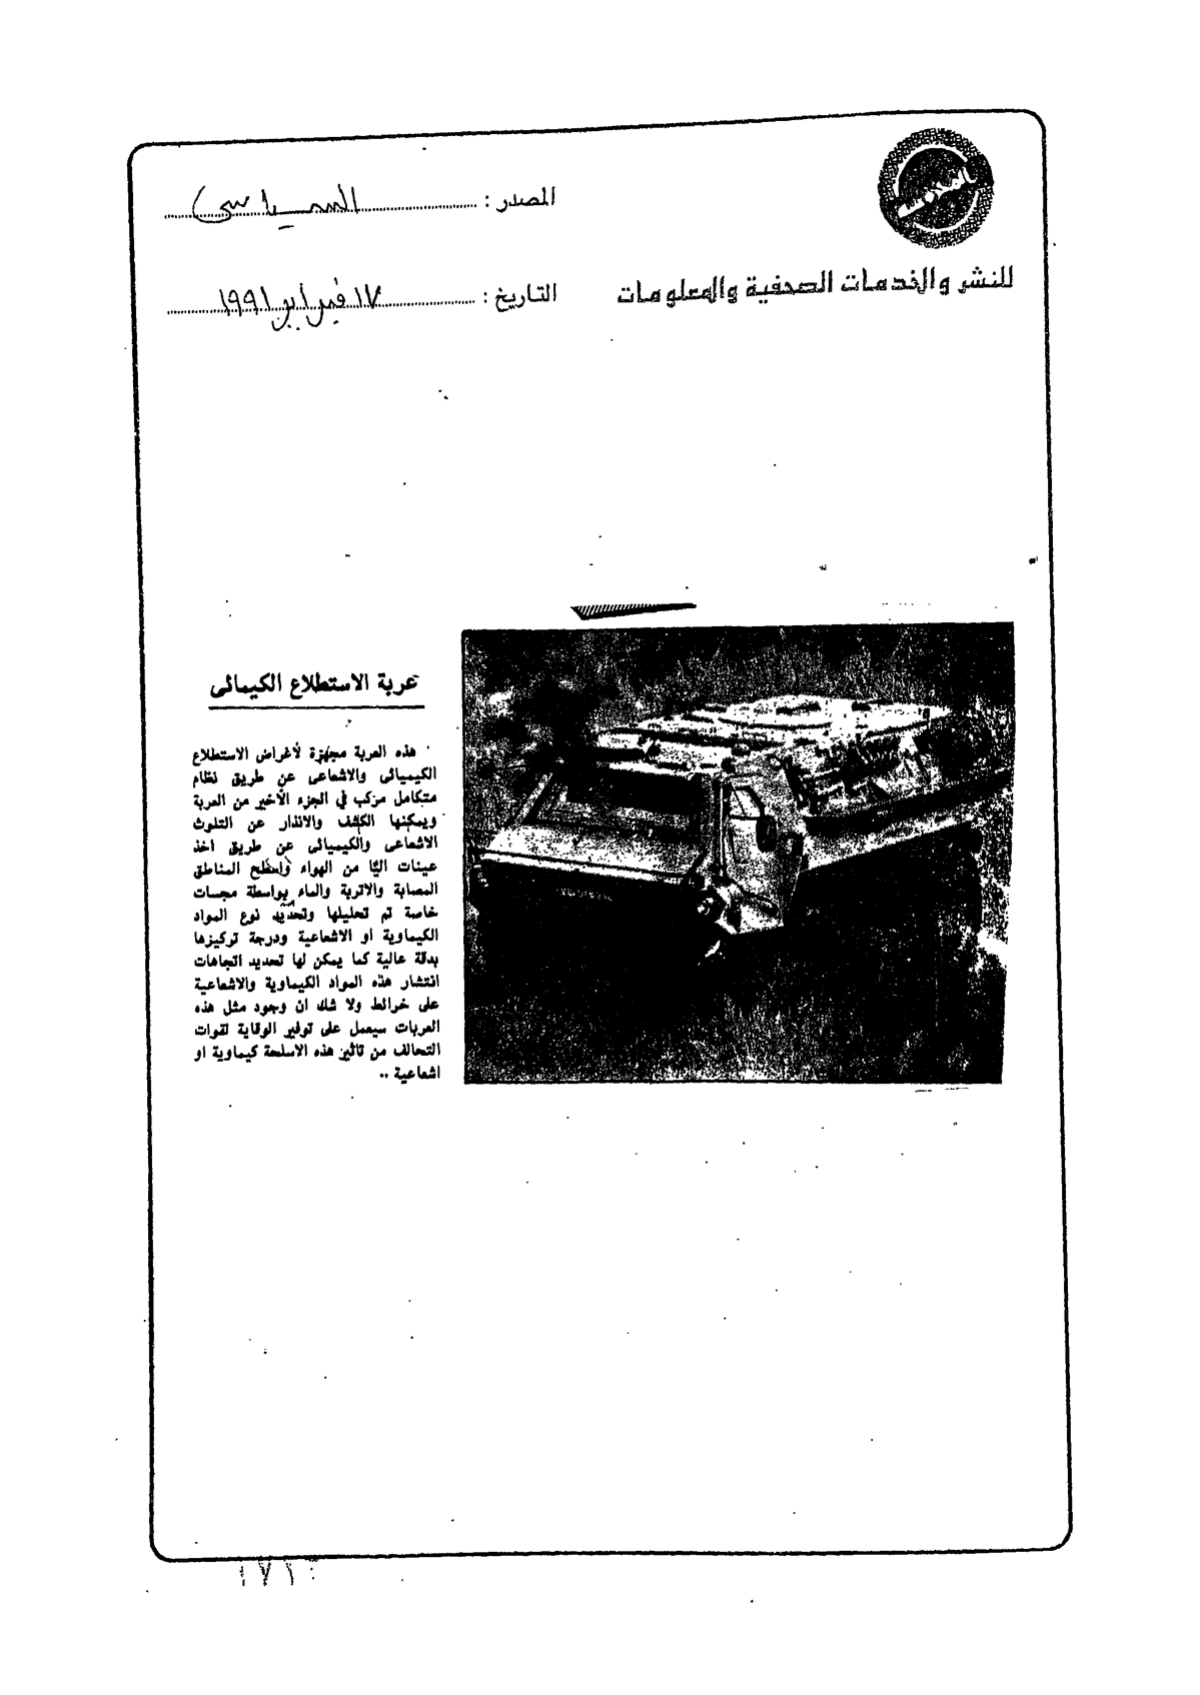 المصدر : السياسى
للنشر والخدمات الصحفية والمعلومات
التاريخ : ١٧ فبراير ١٩٩١
عربة الاستطلاع الكيمائى
هذه العربة مجهزة لأغراض الاستطلاع
الكيميائى والاشعاعى عن طريق نظام
متكامل مركب في الجزء الأخير من العربة
ويمكنها الكشف والانذار عن التلوث
الاشعاعى والكيميائى عن طريق اخذ
عينات اليًا من الهواء واسطح المناطق
المصابة والاتربة والماء بواسطة مجسات
خاصة تم تحليلها وتحديد نوع المواد
الكيماوية او الاشعاعية ودرجة تركيزها
بدقة عالية كما يمكن لها تحديد اتجاهات
انتشار هذه المواد الكيماوية والاشعاعية
على خرائط ولا شك ان وجود مثل هذه
العربات سيعمل على توفير الوقاية لقوات
التحالف من تاثير هذه الاسلحة كيماوية او
اشعاعية ..